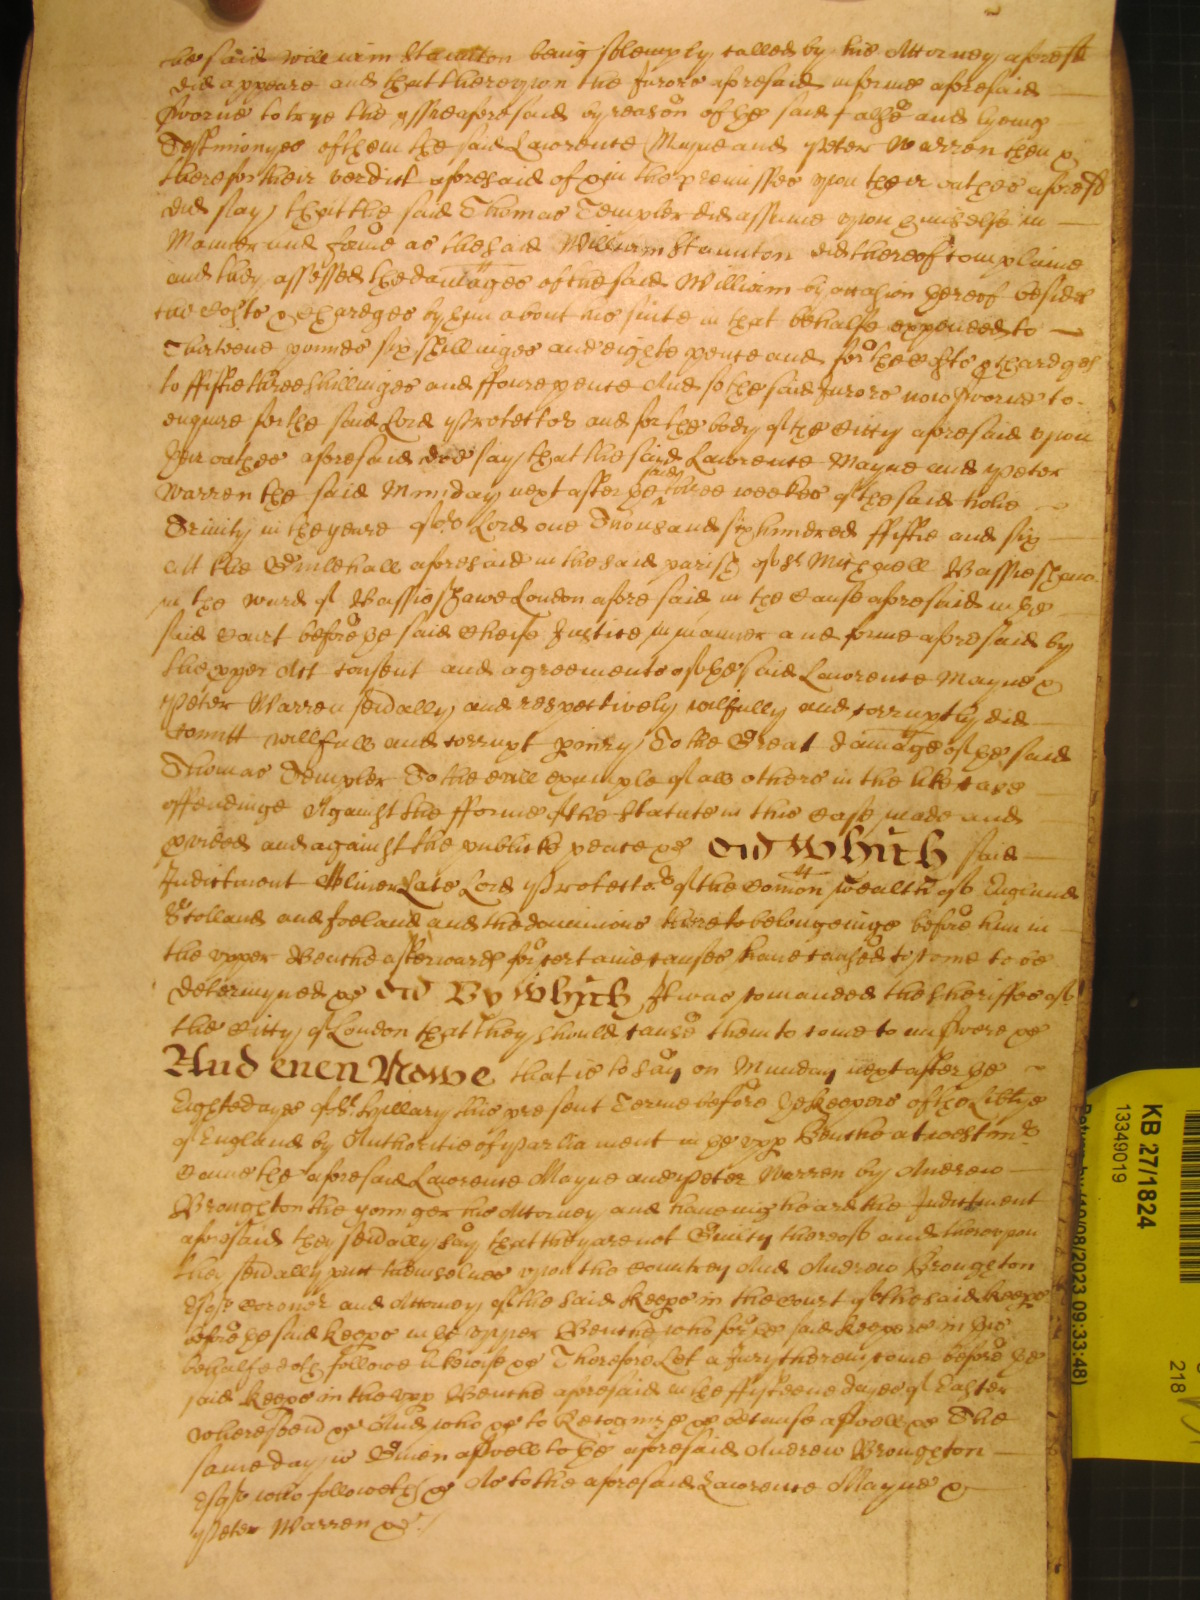 the said William Staunton being solemply called by his Attorney aforesd
did appeare and that thereupon the Jurors aforesaid in forme aforesaid
sworne to trye the yssue aforesaid by reason of the said false and lyeing
Testimonyes of them the said Lawrence Mayne and Peter Warren then &
there for their verdict aforesaid of & in the premisses upon their oathes aforesd
did say that the said Thomas Templer did assume upon himselfe in
Manner and forme as the said William Staunton did thereof complaine
and they assessed the damages of the said William by occasion hereof besides
the Costs & Chardges by him about his suite in that behalfe expended to
Thirteene poundes six shillinges and eighte pence and for the Costs & Chardges
to ffiftie three shillinges and ffoure pence And so the said Jurors now sworne to
enquire for the said Lord Protector and for the body of the Citty aforesaid upon
their oathes aforesaid doe say that the said Lawrence Mayne and Peter
Warren the said Munday next after the said three weekes of the said holie
Trinity in the yeare of or Lord one Thousand six hundred ffiftie and six
att the Guildhall aforesaid in the said parish of St Michaell Bassieshawe
in the ward of Bassieshawe London aforesaid in the Cause aforesaid in the
said Court before the said Cheife Justice in manner and forme aforesaid by
their proper Act consent and agreements of the said Lawrence Mayne &
Peter Warren sevally and respectively wilfully and corruptly did
Comitt willfull and corrupt periury To the Great damage of the said
Thomas Templer To the evill example of all others in the like case
offendinge Against the fforme of the Statute in this case made and
pvided and against the publicke peace &c And Which said
Indictment Oliver Late Lord Protector of the Comon wealth of England
Scotland and Ireland and the dominions thereto belongeinge before him in
the upper Benche afterwards for certaine causes have caused to come to be
determyned &c And By Which It was comanded the Sheriffes of
the Citty of London that they should cause them to come to answere &c
And even Nowe that is to say on Munday next after the
Eight dayes of St Hyllary this present Terme before the Keepers of the Libtye
of England by Authoritie of Parliament in the upp Benche at Westmr
Came the aforesaid Lawrence Mayne and Peter Warren by Andrew
Broughton the younger his Attorney and haveing heard the Indictment
aforesaid they sevally say that they are not Guilty thereof and thereupon
they sevally putt themselves upon the Countrey And Andrew Broughton
Esqr Coroner and Attorney of the said Keeps in the Court of the said Keeps
before the said Keeps in the upper Benche who for the said Keepers in this
behalfe doth followe likewise &c Therefore Let a Jury therein come before the
said Keeps in the upp Benche aforesaid in the ffyfteene dayes of Easter
wheresoevr &c And who &c to Recognize &c Because aswell &c The
same day is Given aswell to the aforesaid Andrew Broughton
Esqr who followeth &c As to the aforesaid Lawrence Mayne &
Peter Warren &c
KB 27/1824
13349019
Return by (10/08/2023 09:33:48)
218